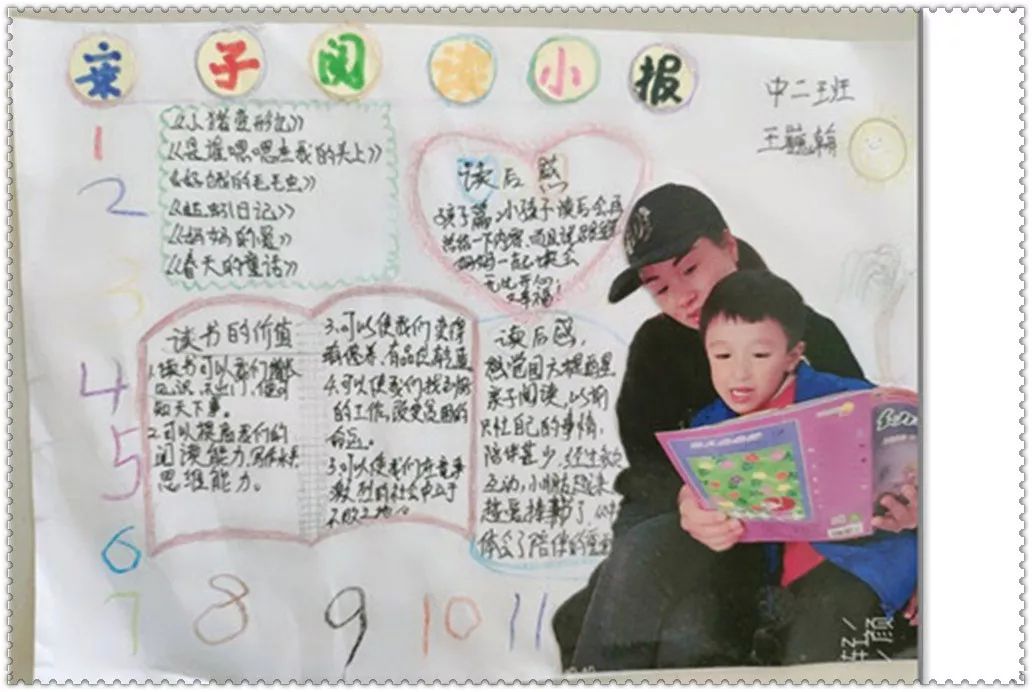 亲子阅读小报
中二班
王巍翰
1
2
3
4
5
6
7
8
9
10
11
《小猪变形记》
《是谁嗯嗯在我的头上》
《好饿的毛毛虫》
《蚯蚓日记》
《妈妈的爱》
《春天的童话》
读后感
孩子篇：小孩子读后会再
总结一下内容，而且说跟爸爸
妈妈一起读书
无比开心，
幸福！
读书的价值
1.读书可以使我们增长
见识，不出门，便可
知天下事。
2.可以提高我们的
阅读能力，写作水平
思维能力。
3.可以使我们变得
有修养，有品位
4.可以使我们找到好
的工作，改变家困的
命运。
5.可以使我们在竞争
激烈的社会中立于
不败之地。
读后感，
感觉回
亲子阅读，以前
只忙自己的事情，
陪伴甚少，经过
互动，小朋友
越爱读书了
体会了陪伴的重要
轻颜